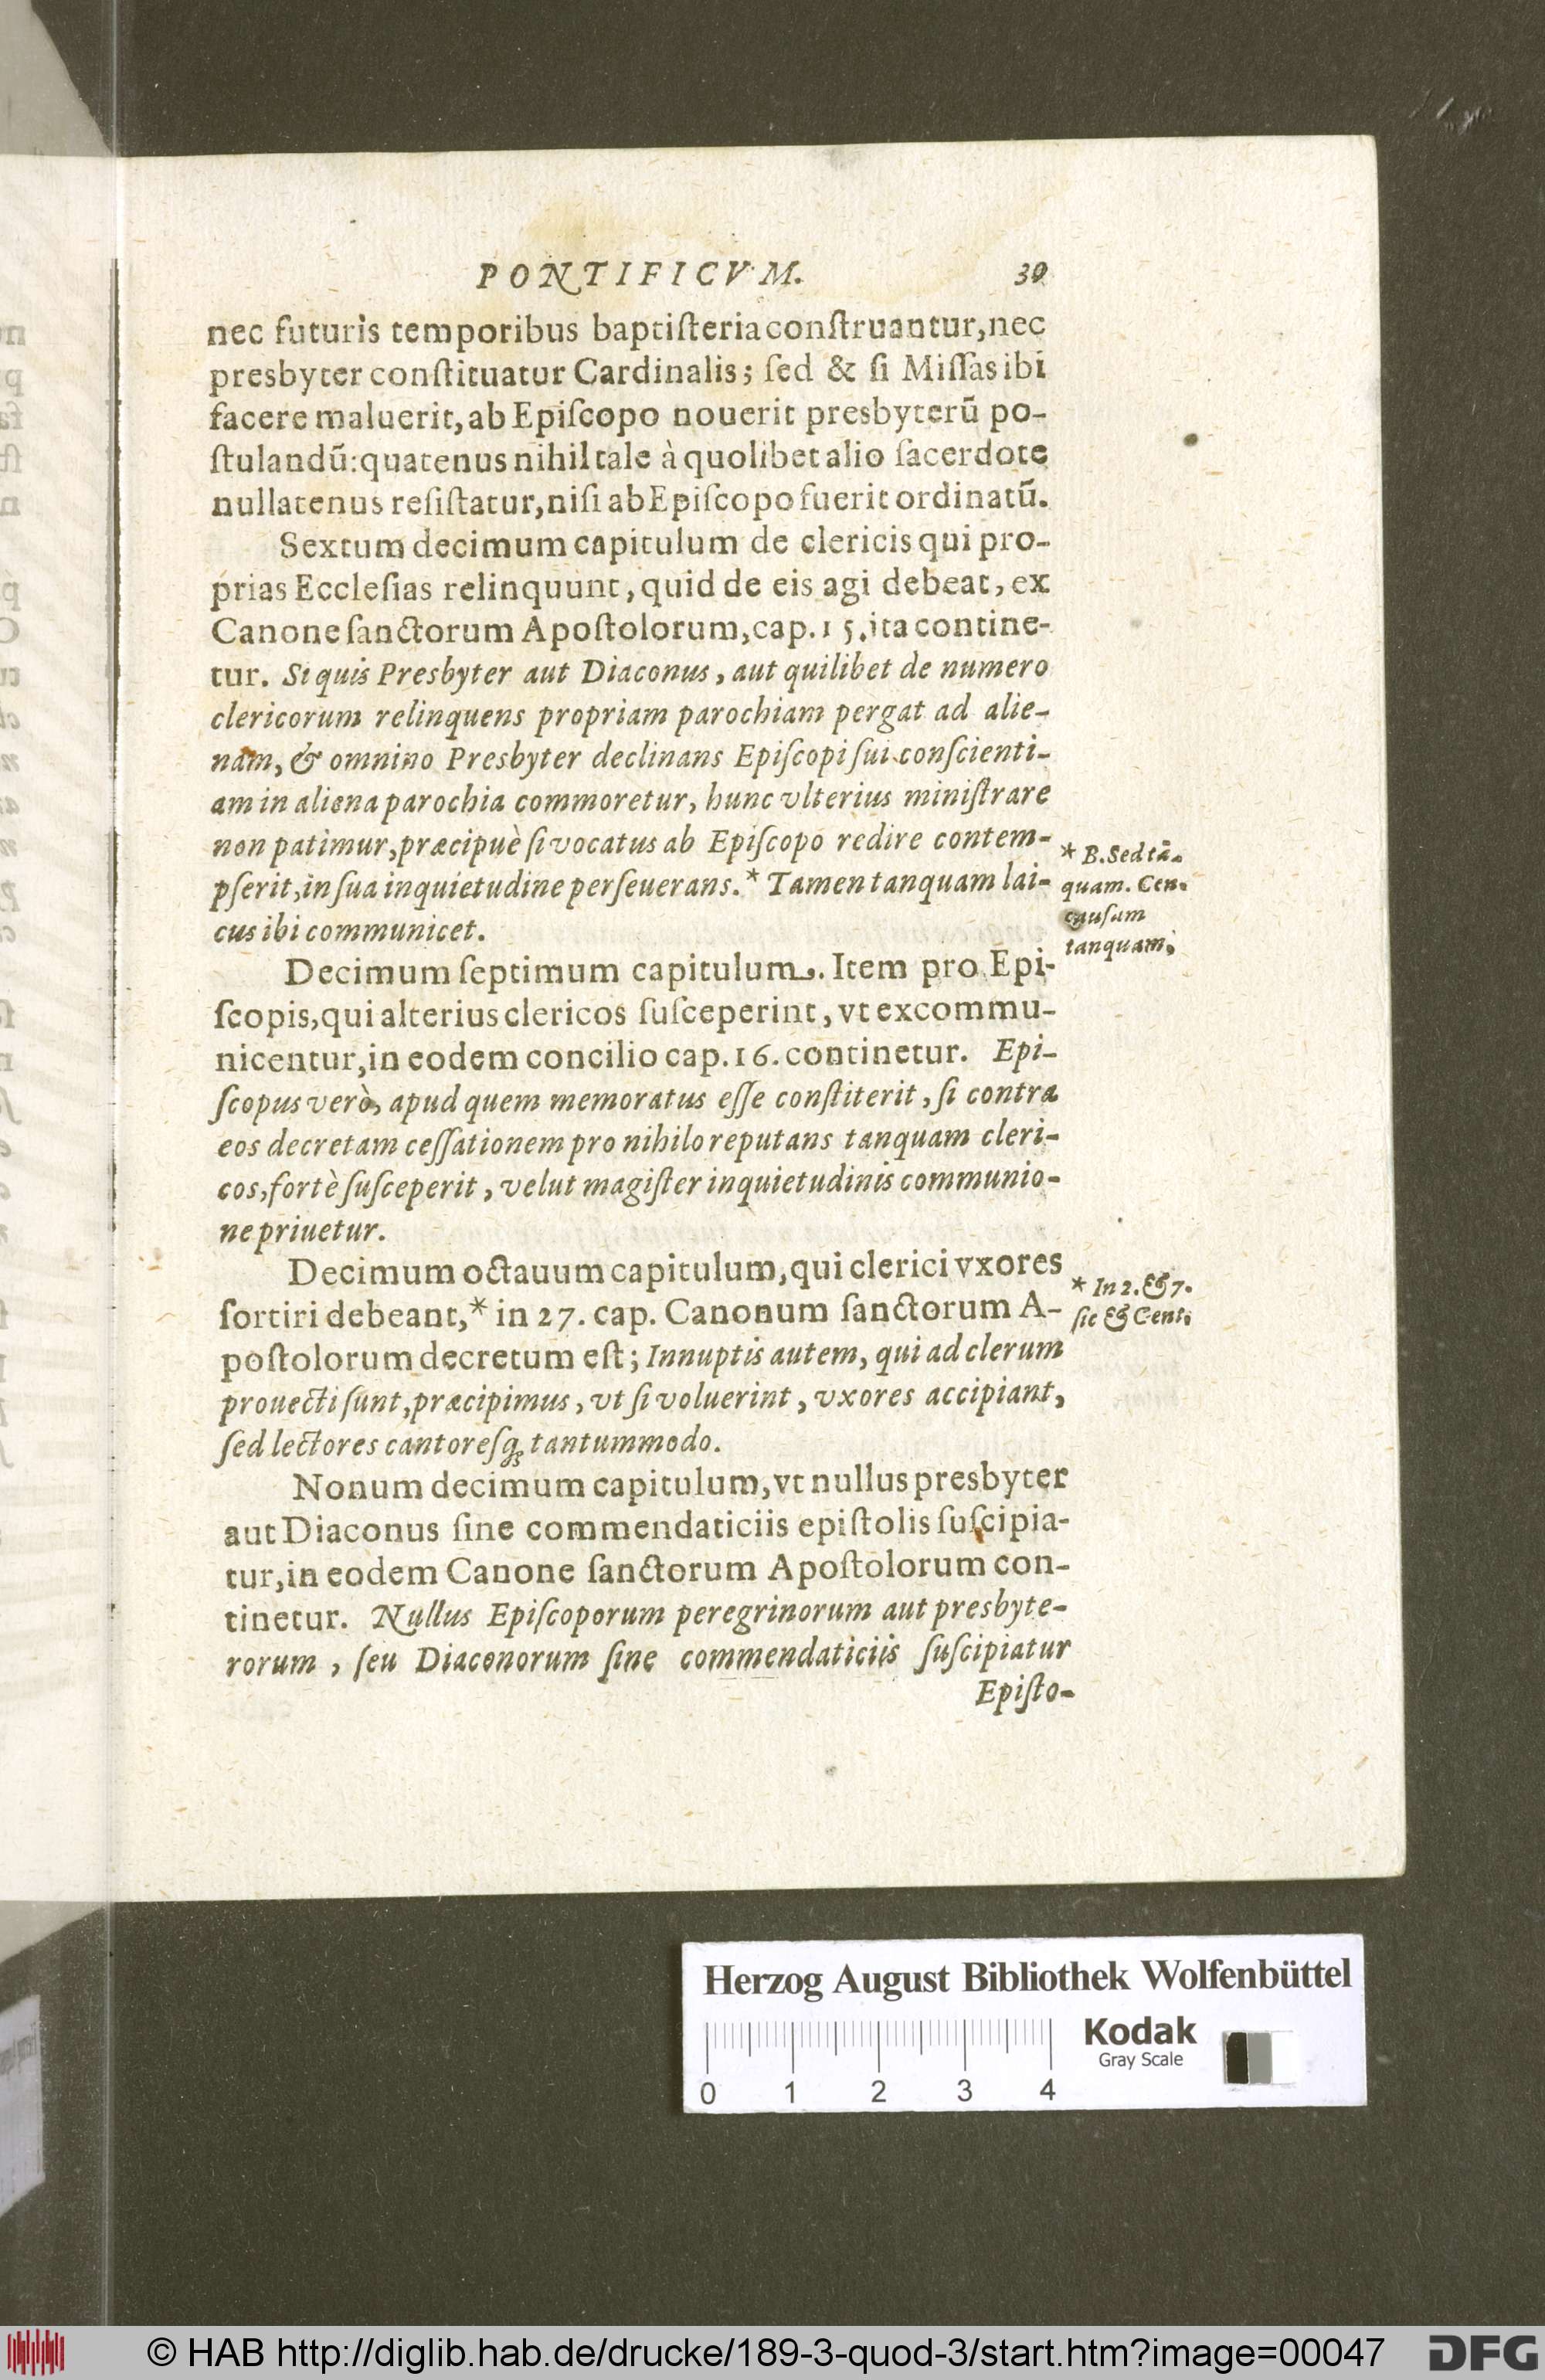 PONTIFICVM. 39
nec futuris temporibus baptiſteria conſtruantur, nec
presbyter conſtituatur Cardinalis; ſed & ſi Miſſas ibi
facere maluerit, ab Epiſcopo nouerit presbyterū po-
ſtulandū: quatenus nihil tale à quolibet alio ſacerdote
nullatenus reſiſtatur, niſi ab Epiſcopo fuerit ordinatū.
Sextum decimum capitulum de clericis qui pro-
prias Eccleſias relinquunt, quid de eis agi debeat, ex
Canone ſanctorum Apoſtolorum, cap. 15. ita contine-
tur. Si quis Presbyter aut Diaconus, aut quilibet de numero
clericorum relinquens propriam parochiam pergat ad alie-
nam, & omnino Presbyter declinans Epiſcopi ſui conſcienti-
am in aliena parochia commoretur, hunc vlterius miniſtrare
non patimur, præcipuè ſi vocatus ab Epiſcopo redire contem-
pſerit, in ſua inquietudine perſeuerans.* Tamen tanquam lai-
cus ibi communicet.
* B. Sed tā-
quam. Cen.
cauſam
tanquam.
Decimum ſeptimum capitulum. Item pro Epi-
ſcopis, qui alterius clericos ſuſceperint, vt excommu-
nicentur, in eodem concilio cap. 16. continetur. Epi-
ſcopus verò, apud quem memoratus eſſe conſtiterit, ſi contra
eos decretam ceſſationem pro nihilo reputans tanquam cleri-
cos, fortè ſuſceperit, velut magiſter inquietudinis communio-
ne priuetur.
Decimum octauum capitulum, qui clerici vxores
ſortiri debeant,* in 27. cap. Canonum ſanctorum A-
poſtolorum decretum eſt; Innuptis autem, qui ad clerum
prouecti ſunt, præcipimus, vt ſi voluerint, vxores accipiant,
ſed lectores cantoreſq; tantummodo.
* In 2. & 7.
ſic & Cent.
Nonum decimum capitulum, vt nullus presbyter
aut Diaconus ſine commendaticiis epiſtolis ſuſcipia-
tur, in eodem Canone ſanctorum Apoſtolorum con-
tinetur. Nullus Epiſcoporum peregrinorum aut presbyte-
rorum, ſeu Diaconorum ſine commendaticiis ſuſcipiatur
Epiſto-
Herzog August Bibliothek Wolfenbüttel
Kodak
Gray Scale
0 1 2 3 4
© HAB http://diglib.hab.de/drucke/189-3-quod-3/start.htm?image=00047
DFG